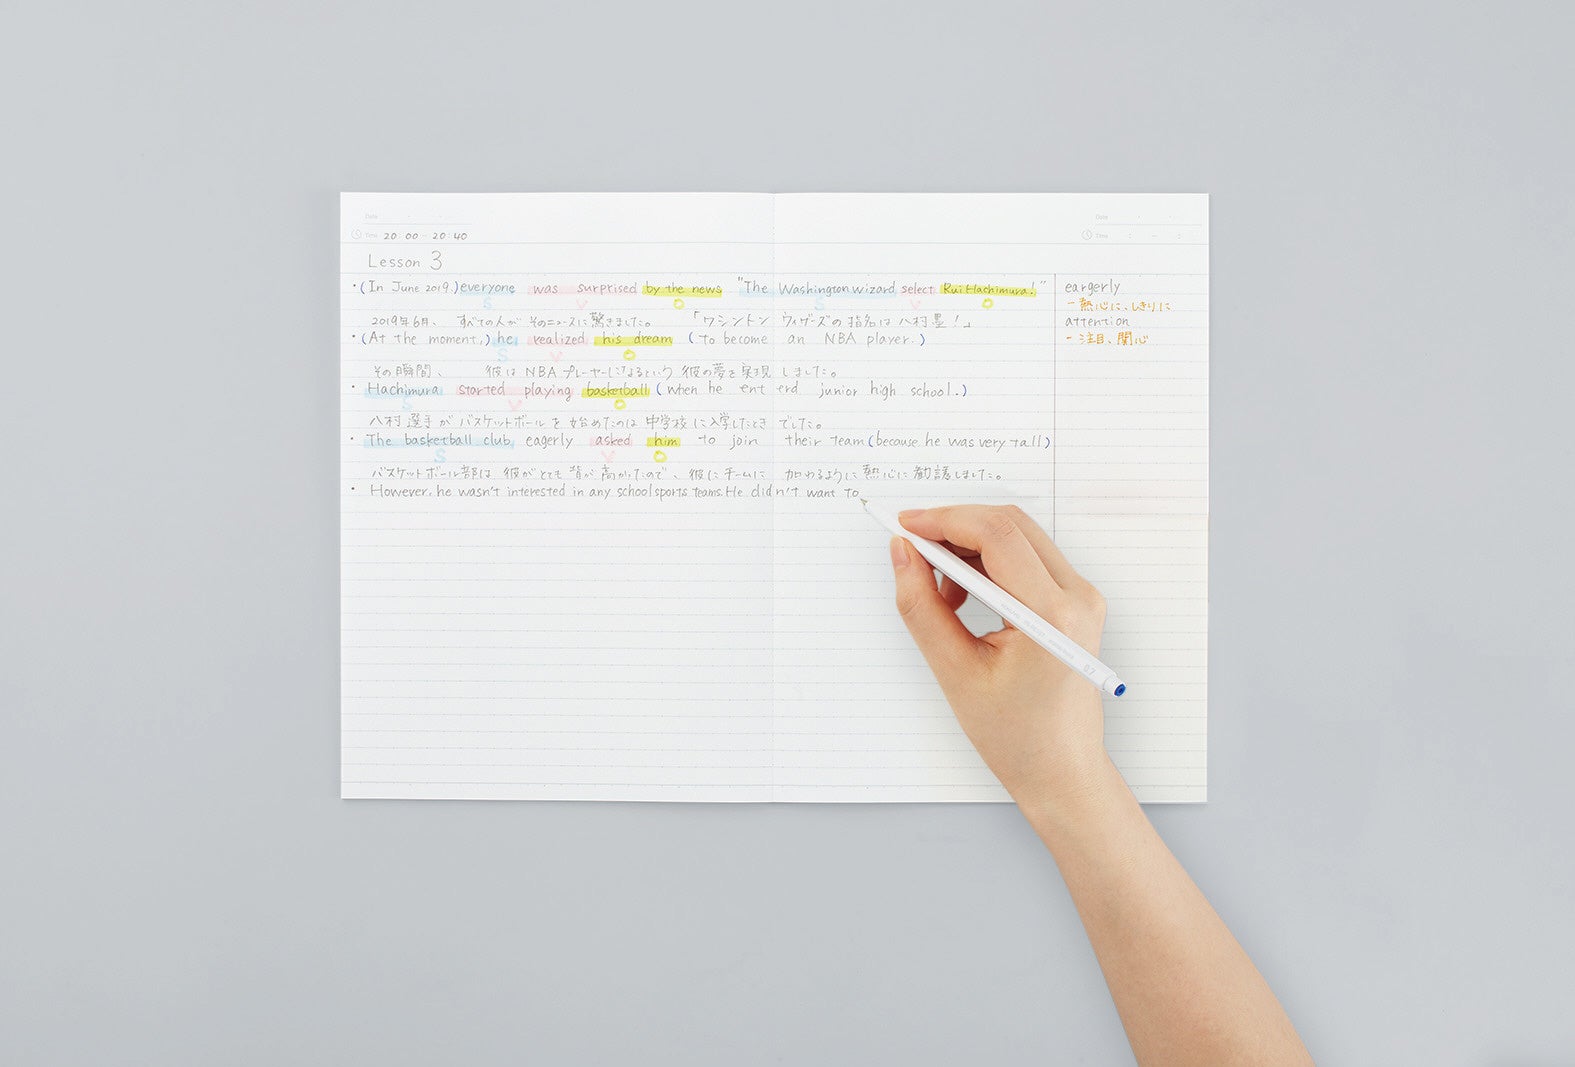 Date
Time 20:00 - 20:40
Date
Time : - :
Lesson 3
・(In June 2019,) everyone was surprised by the news "The Washington wizard select Rui Hachimura!"
S V O S V O
2019年6月、すべての人がそのニュースに驚きました。「ワシントンウィザーズの指名は八村塁!」
・(At the moment,) he realized his dream (to become an NBA player.)
S V O
その瞬間、彼はNBAプレーヤーになるという彼の夢を実現しました。
・Hachimura started playing basketball (when he ent erd junior high school.)
S V O
八村選手がバスケットボールを始めたのは中学校に入学したときでした。
・The basketball club eagerly asked him to join their team (because he was very tall)
S V O
バスケットボール部は彼がとても背が高かったので、彼にチームに加わるように熱心に勧誘しました。
・However, he wasn't interested in any school sports teams. He didn't want to
eargerly
- 熱心に、しきりに
attention
- 注目、関心
0.7